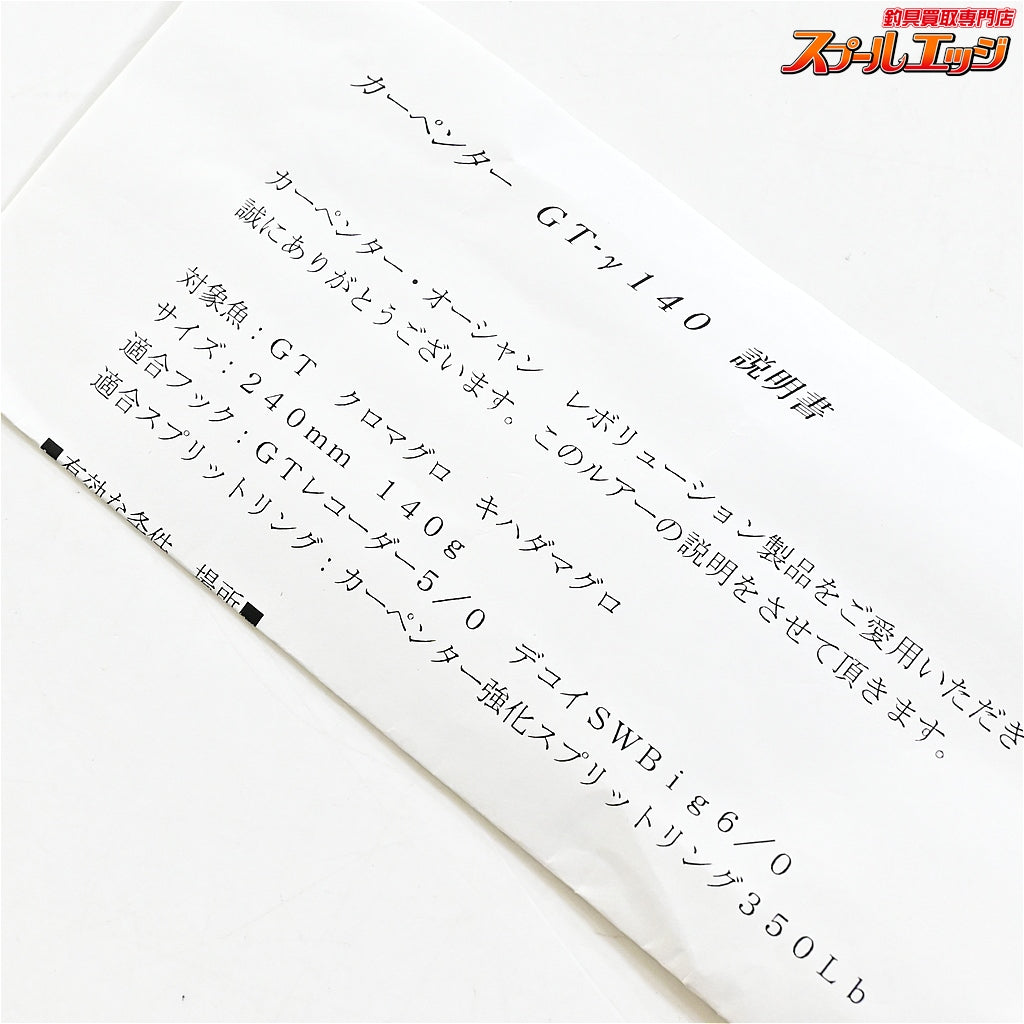 釣具買取専門店
スプールエッジ
カーペンター　ＧＴ-γ１４０　説明書
カーペンター・オーシャン　レボリューション製品をご愛用いただき
誠にありがとうございます。このルアーの説明をさせて頂きます。
対象魚：ＧＴ　クロマグロ　キハダマグロ
サイズ：２４０ｍｍ　１４０ｇ
適合フック：ＧＴレコーダー５／０　デコイＳＷＢｉｇ６／０
適合スプリットリング：カーペンター強化スプリットリング３５０Ｌｂ
■有効な条件　場所■